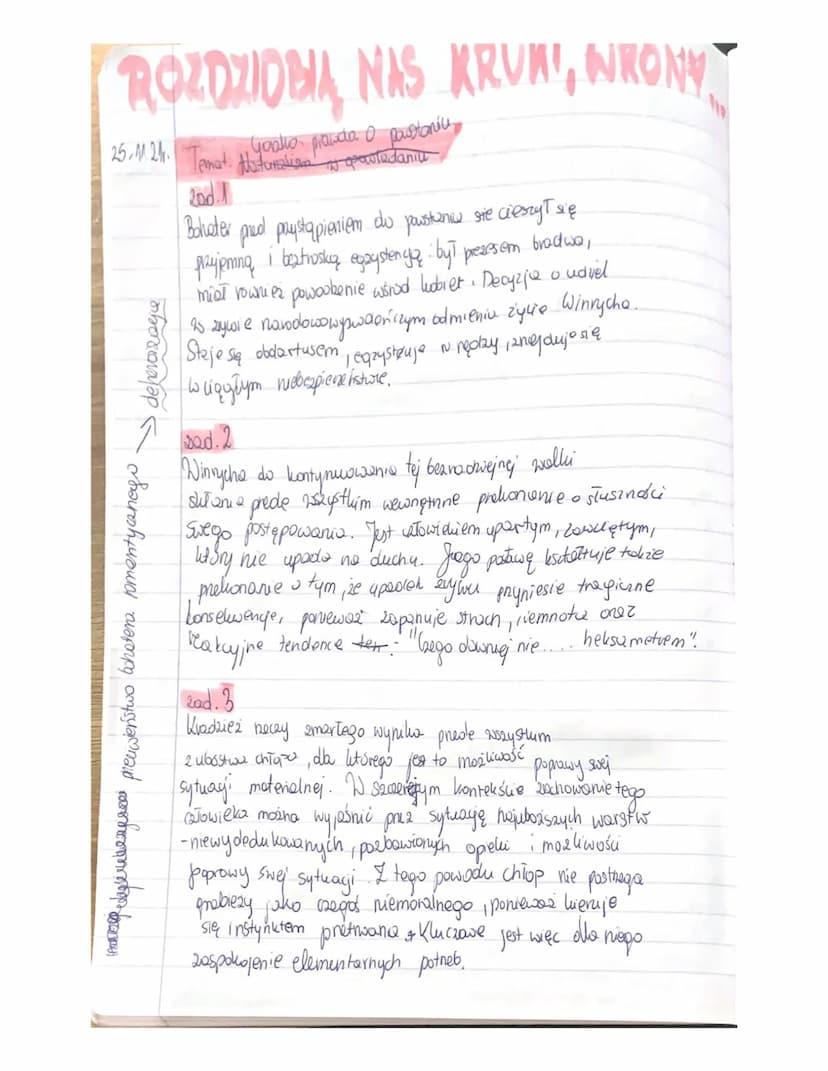 ROZDZIOBIĄ NAS KRUKI, WRONY...
25.11.21r.
Gorzka prawda o powstaniu
Temat: Naturalizm w opowiadaniu
zad.1
Bohater przed przystąpieniem do powstania się cieszył się
przyjemną i beztroską egzystencją: był prezesem bractwa,
miał również powodzenie wśród kobiet. Decyzja o udziel
w zrywie narodowowyzwoleńczym odmienia życie Winrycha.
Staje się obdartusem, egzystuje w nędzy, znajduje się
w ciągłym niebezpieczeństwie.
zad.2
Winrycha do kontynuowania tej beznadziejnej walki
skłania przede wszystkim wewnętrzne przekonanie o słuszności
swego postępowania. Jest człowiekiem upartym, zawziętym,
który nie upada na duchu. Jego postawę kształtuje także
przekonanie o tym, że upadek zrywu przyniesie tragiczne
konsekwencje, ponieważ zapanuje strach, ciemnota oraz
reakcyjne tendencje - "Czego dawniej nie.... heksametrem".
zad.3
Kradzież rzeczy zmarłego wynika przede wszystkim
z ubóstwa chłopa, dla którego jes to możliwość poprawy swej
sytuacji materialnej. W szerszym kontekście zachowanie tego
człowieka można wyjaśnić przez sytuację najuboższych warstw
- niewydedukowanych, pozbawionych opieki i możliwości
poprawy swej sytuacji. Z tego powodu chłop nie postrzega
grabieży jako czegoś niemoralnego, ponieważ kieruje
się instynktem przetrwania. Kluczowe jest więc dla niego
zaspokojenie elementarnych potrzeb.
przeciwieństwo bohatera romantycznego → deheroizacja